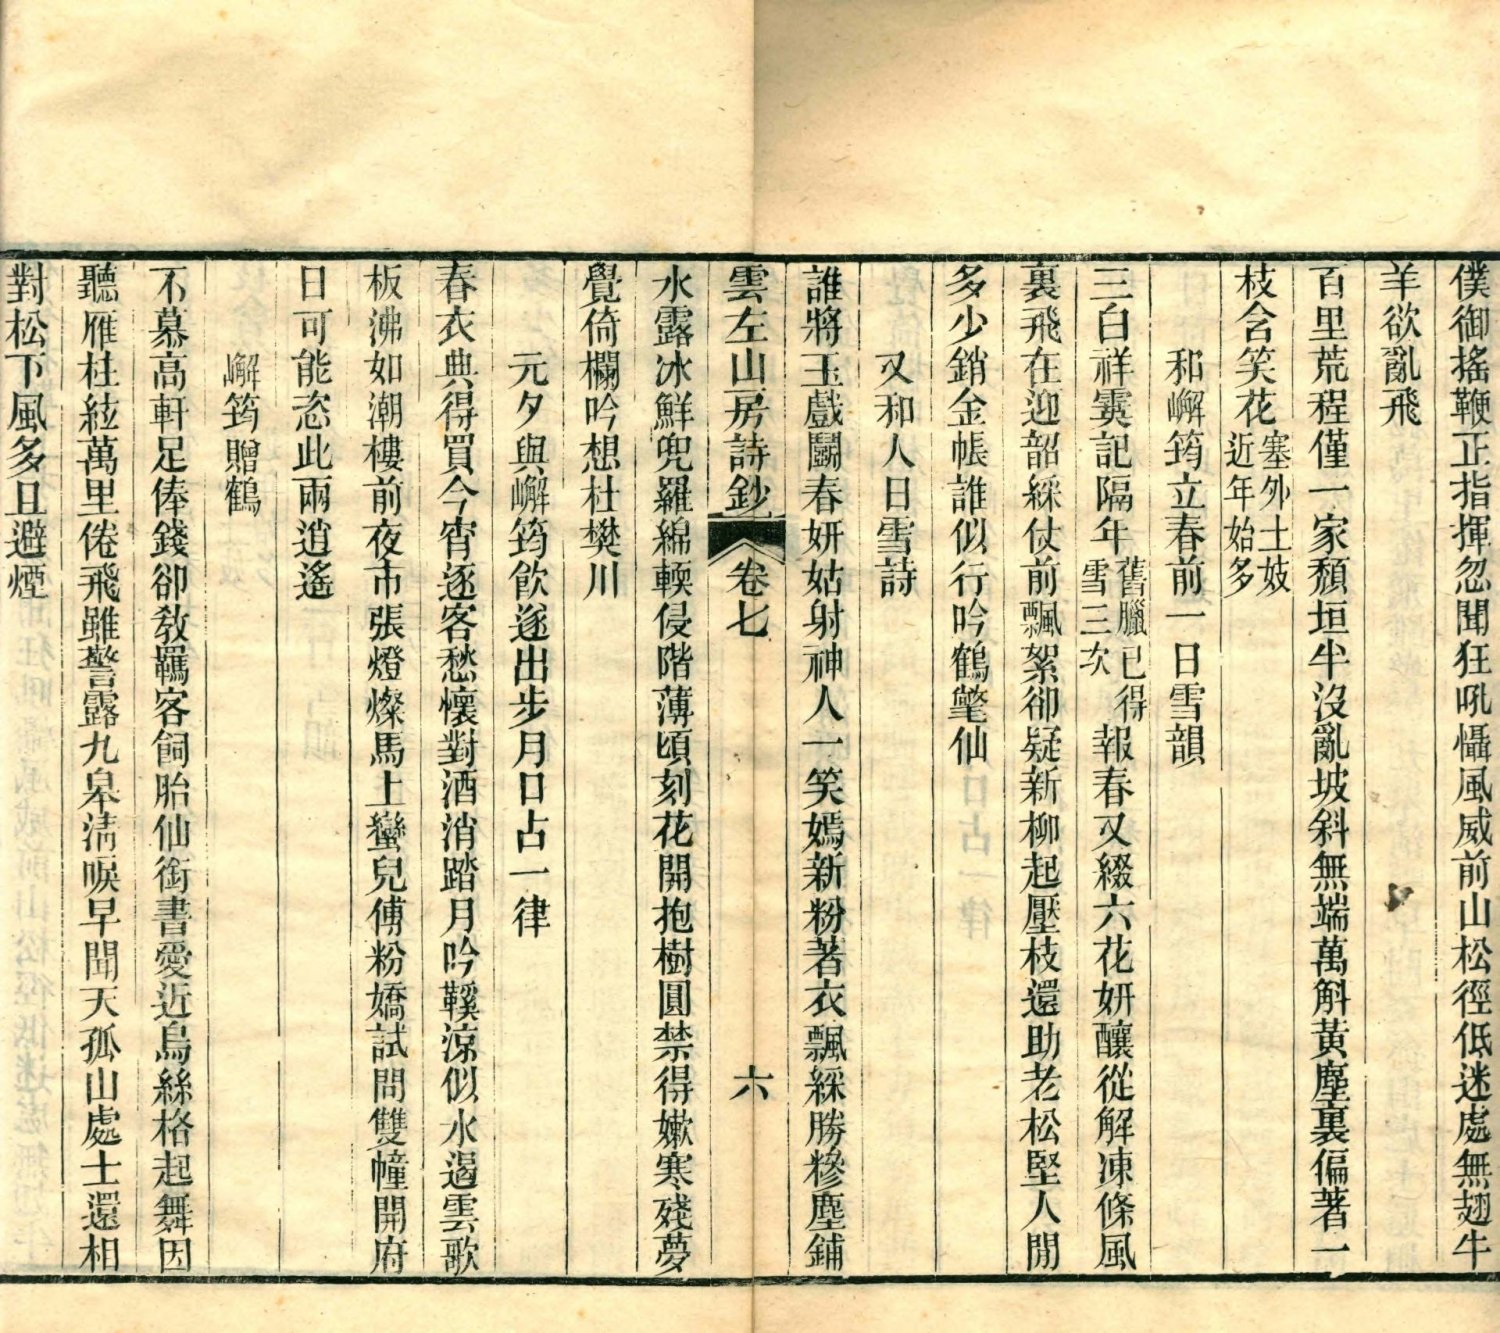 僕御搖鞭正指揮忽聞狂吼懾風威前山松徑低迷處無翅牛
羊欲亂飛
百里荒程僅一家頹垣半沒亂坡斜無端萬斛黃塵裏偏著一
枝含笑花塞外土妓
近年始多
和嶰筠立春前一日雪韻
三白祥霙記隔年舊臘已得
雪三次報春又綴六花妍釀從解凍條風
裏飛在迎韶綵仗前飄絮卻疑新柳起壓枝還助老松堅人閒
多少銷金帳誰似行吟鶴氅仙
又和人日雪詩
誰將玉戲鬬春妍姑射神人一笑嫣新粉著衣飄綵勝糝塵鋪
雲左山房詩鈔 卷七 六
水露冰鮮兜羅綿輭侵階薄頃刻花開抱樹圓禁得嫩寒殘夢
覺倚欄吟想杜樊川
元夕與嶰筠飲遂出步月口占一律
春衣典得買今宵逐客愁懷對酒消踏月吟鞵涼似水遏雲歌
板沸如潮樓前夜市張燈燦馬上蠻兒傅粉嬌試問雙幢開府
日可能恣此兩逍遙
嶰筠贈鶴
不慕高軒足俸錢卻敎羈客飼胎仙銜書愛近烏絲格起舞因
聽雁柱絃萬里倦飛雖警露九皋淸唳早聞天孤山處士還相
對松下風多且避煙